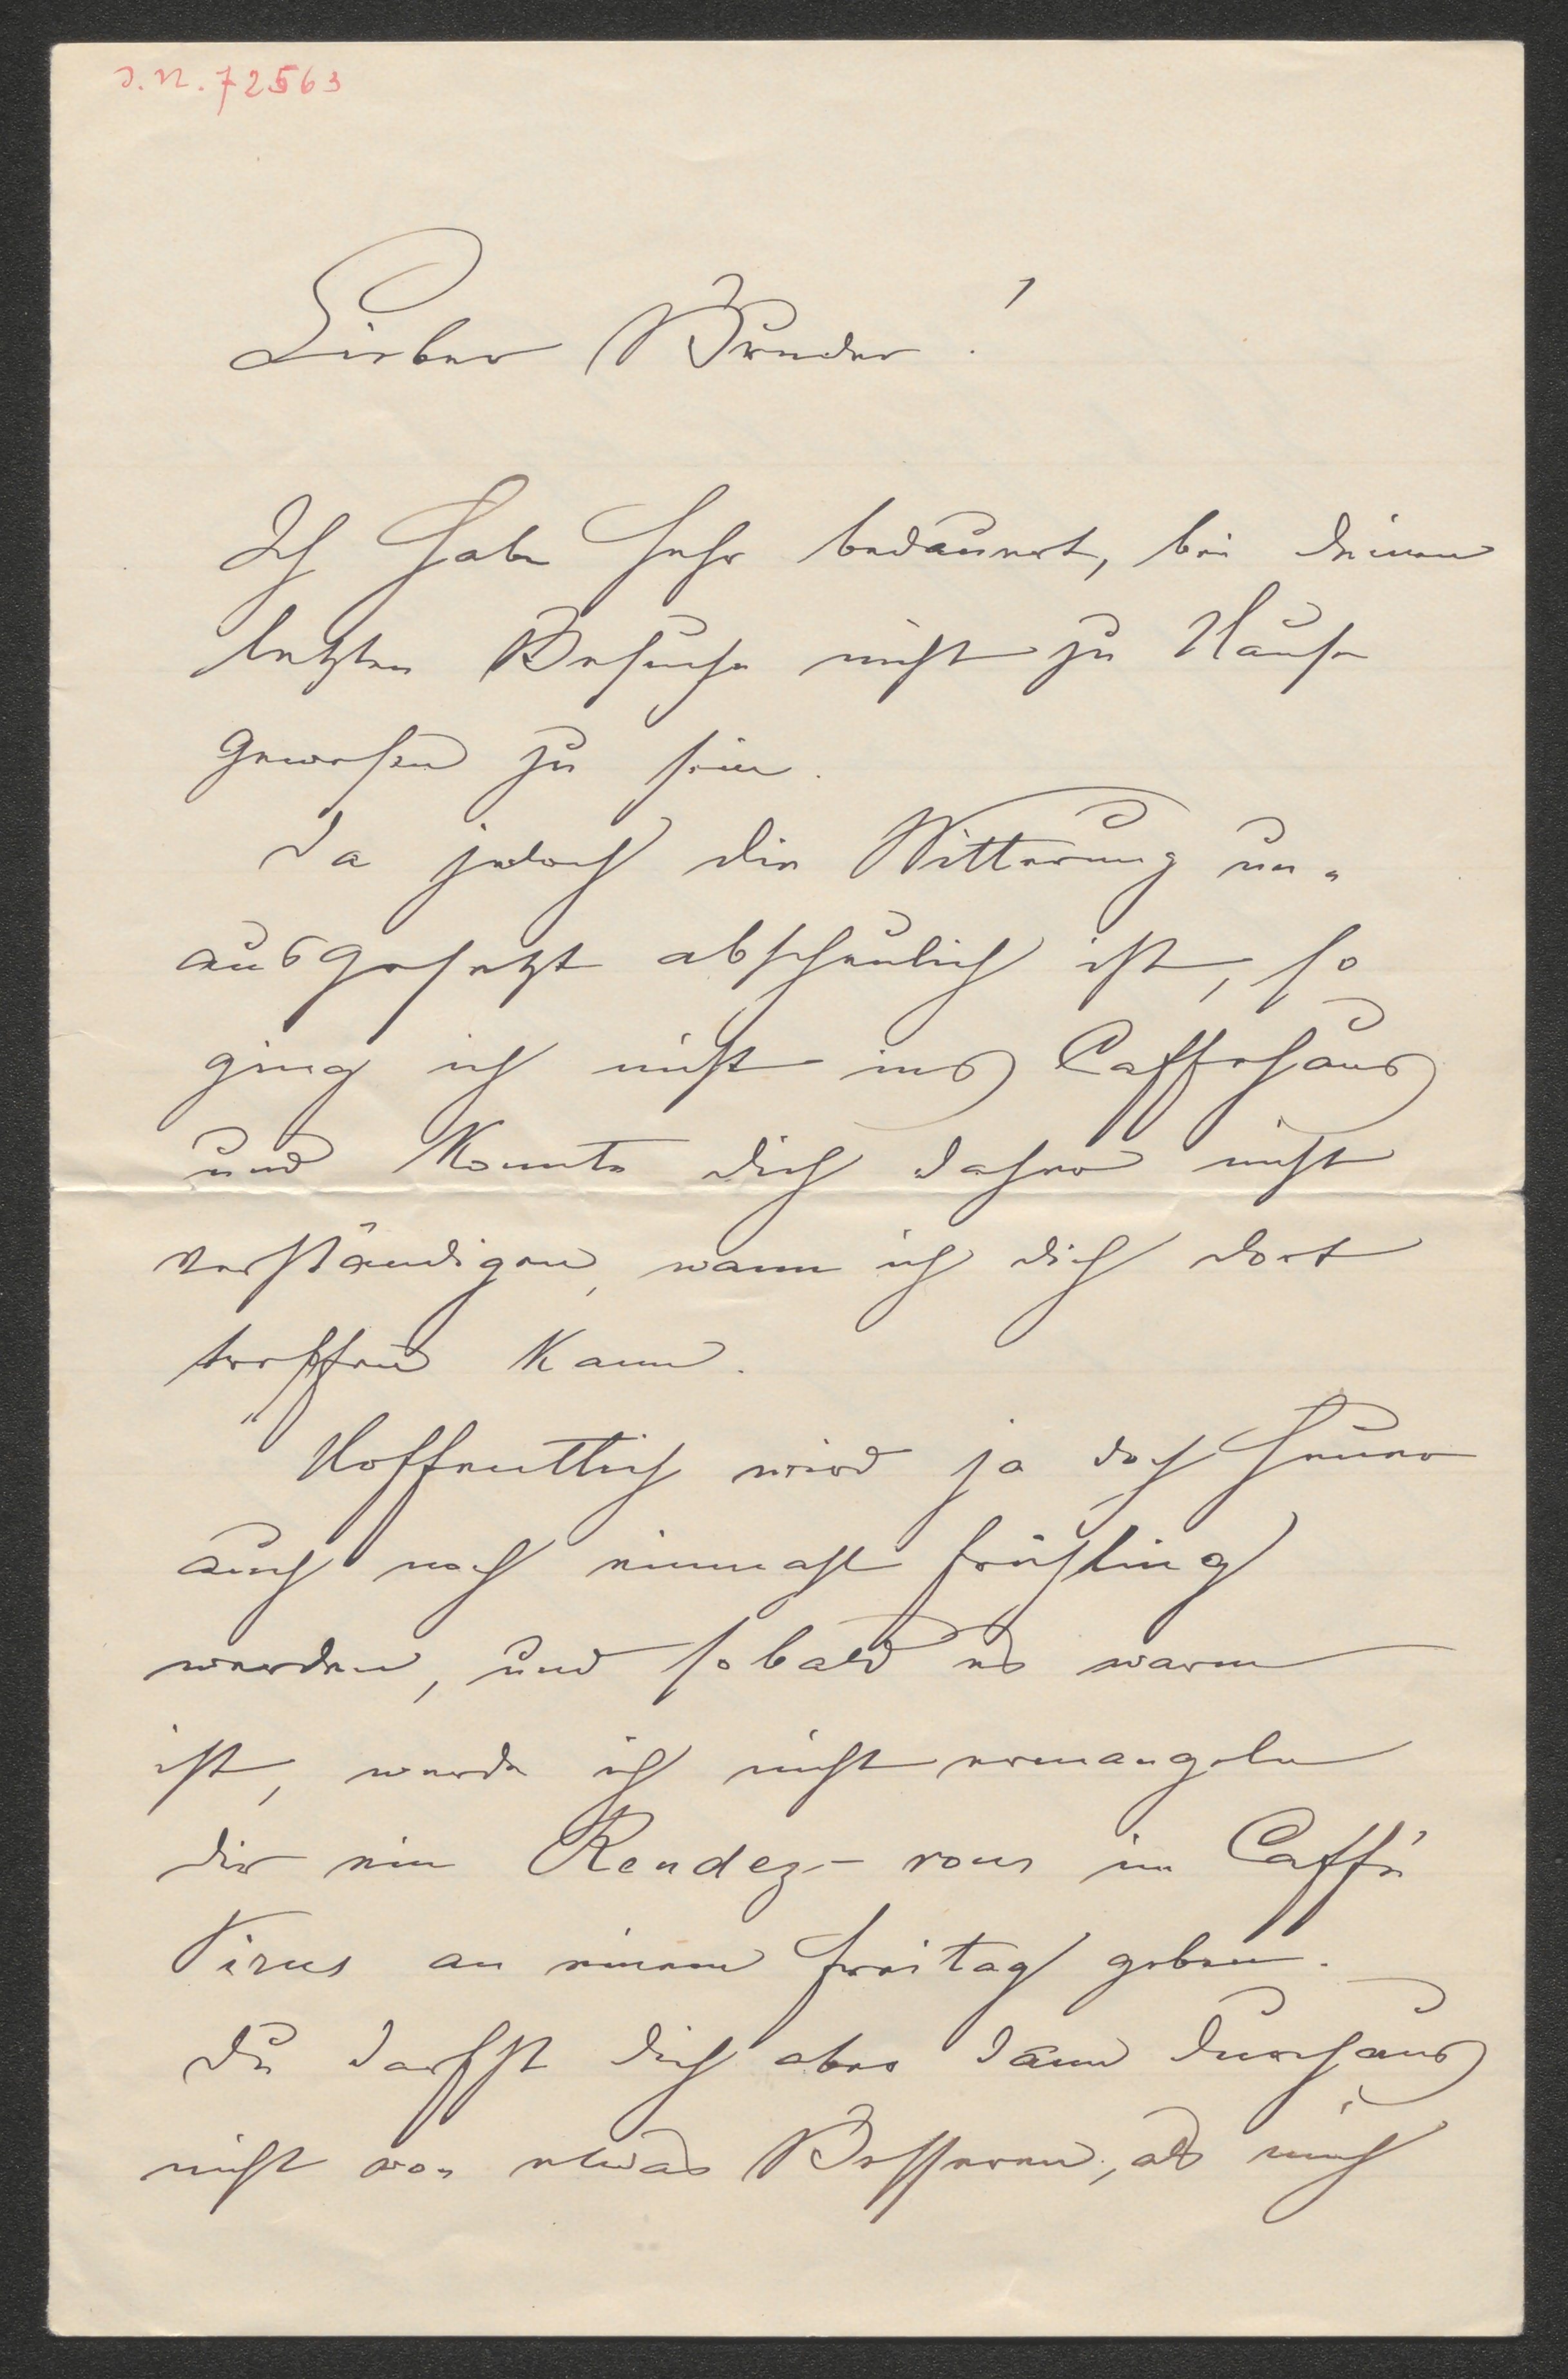 J. N. 72563
Lieber Bruder!
Ich habe sehr bedauert, bei deinem
letzten Besuche nicht zu Hause
gewesen zu sein.
Da jedoch die Witterung un-
ausgesetzt abscheulich ist, so
ging ich nicht ins Caffehaus
und konnte dich daher nicht
verständigen, wann ich dich dort
treffen kann.
Hoffentlich wird ja doch heuer
auch noch einmahl Frühling
werden, und sobald es warm
ist, werde ich nicht ermangeln
dir ein Rendez-vous im Caffé
an einem Freitag geben.
Du darfst dich aber dann durchaus
nicht von etwas Besseren, als mich